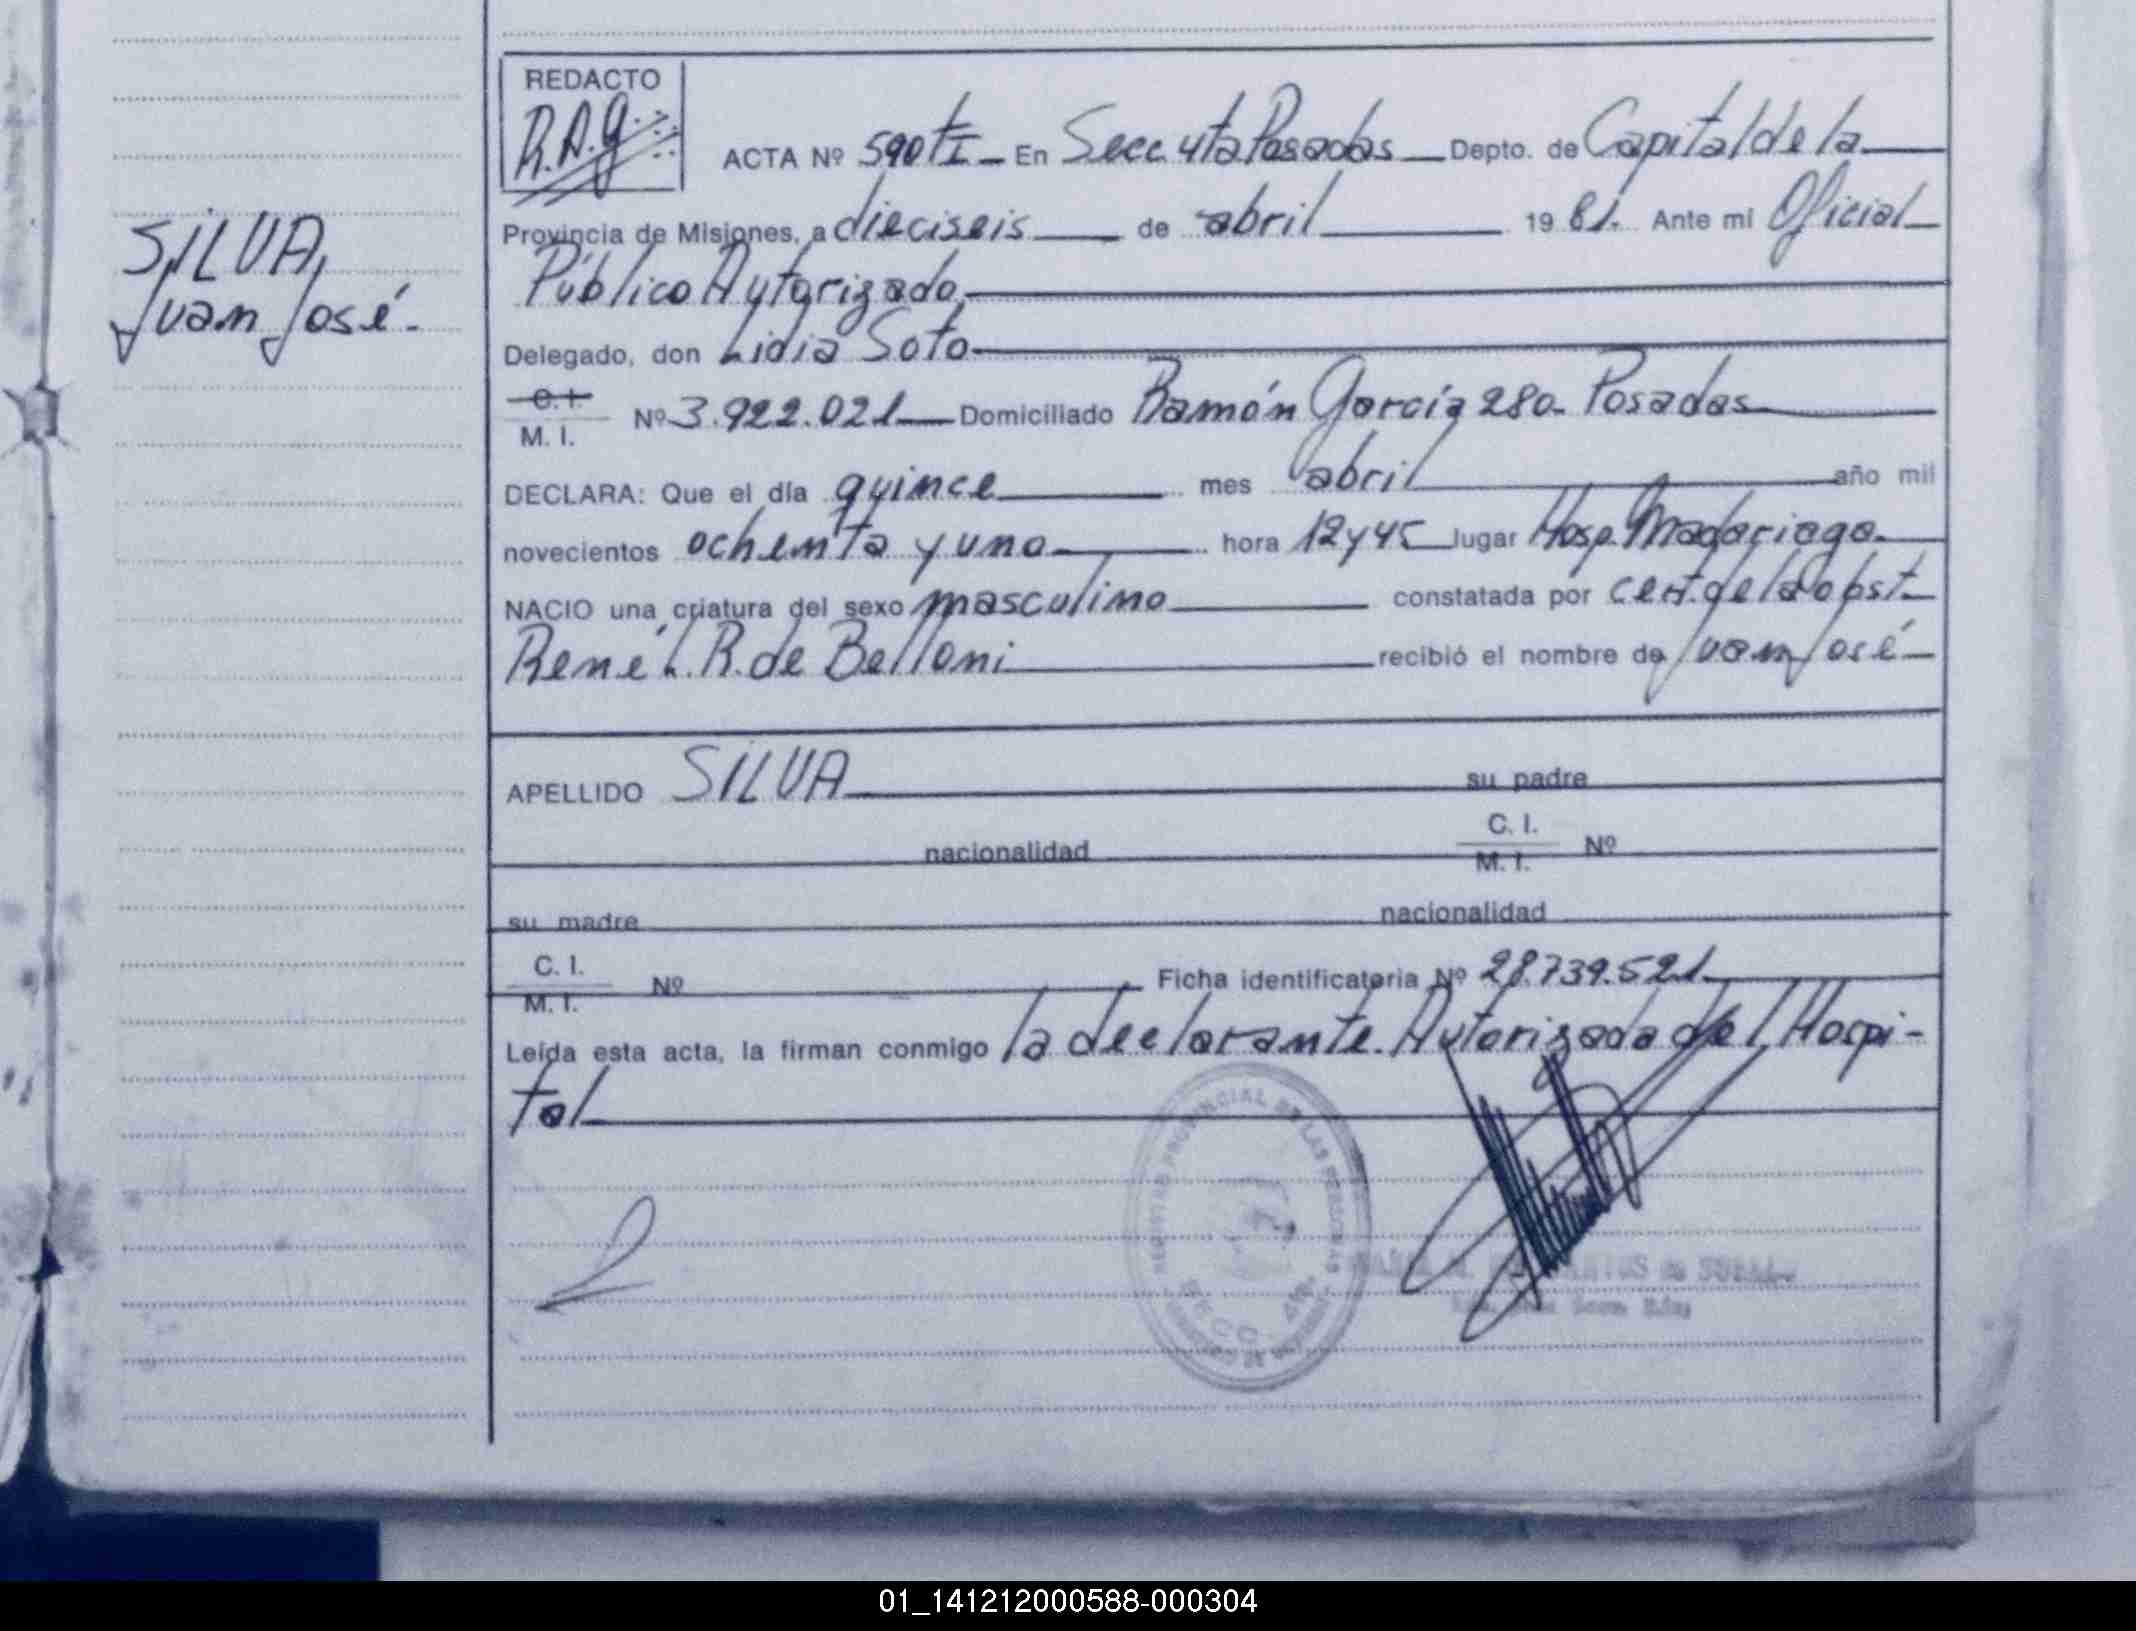 REDACTO
R.A.G.
ACTA Nº 590 tI En Secc 4ta Posadas Depto. de Capital de la
SILVA,
Juan José.
Provincia de Misiones, a dieciseis de abril 1981. Ante mi Oficial
Público Autorizado
Delegado, don Lidia Soto
C. I.
M. I. Nº 3.922.021 Domiciliado Ramón García 280. Posadas
DECLARA: Que el día quince mes abril año mil
novecientos ochenta y uno hora 12 y 45 lugar Hosp. Madariaga
NACIO una criatura del sexo masculino constatada por cert. de la obst.
René L. R. de Belloni recibió el nombre de Juan José
APELLIDO SILVA su padre
nacionalidad C. I. Nº
M. I.
su madre nacionalidad
C. I. Nº Ficha identificatoria Nº 28.739.521
M. I.
Leída esta acta, la firman conmigo la declarante. Autorizada del Hospi-
tal
REGISTRO PROVINCIAL DE LAS PERSONAS
SECC. 4ta.
01_141212000588-000304